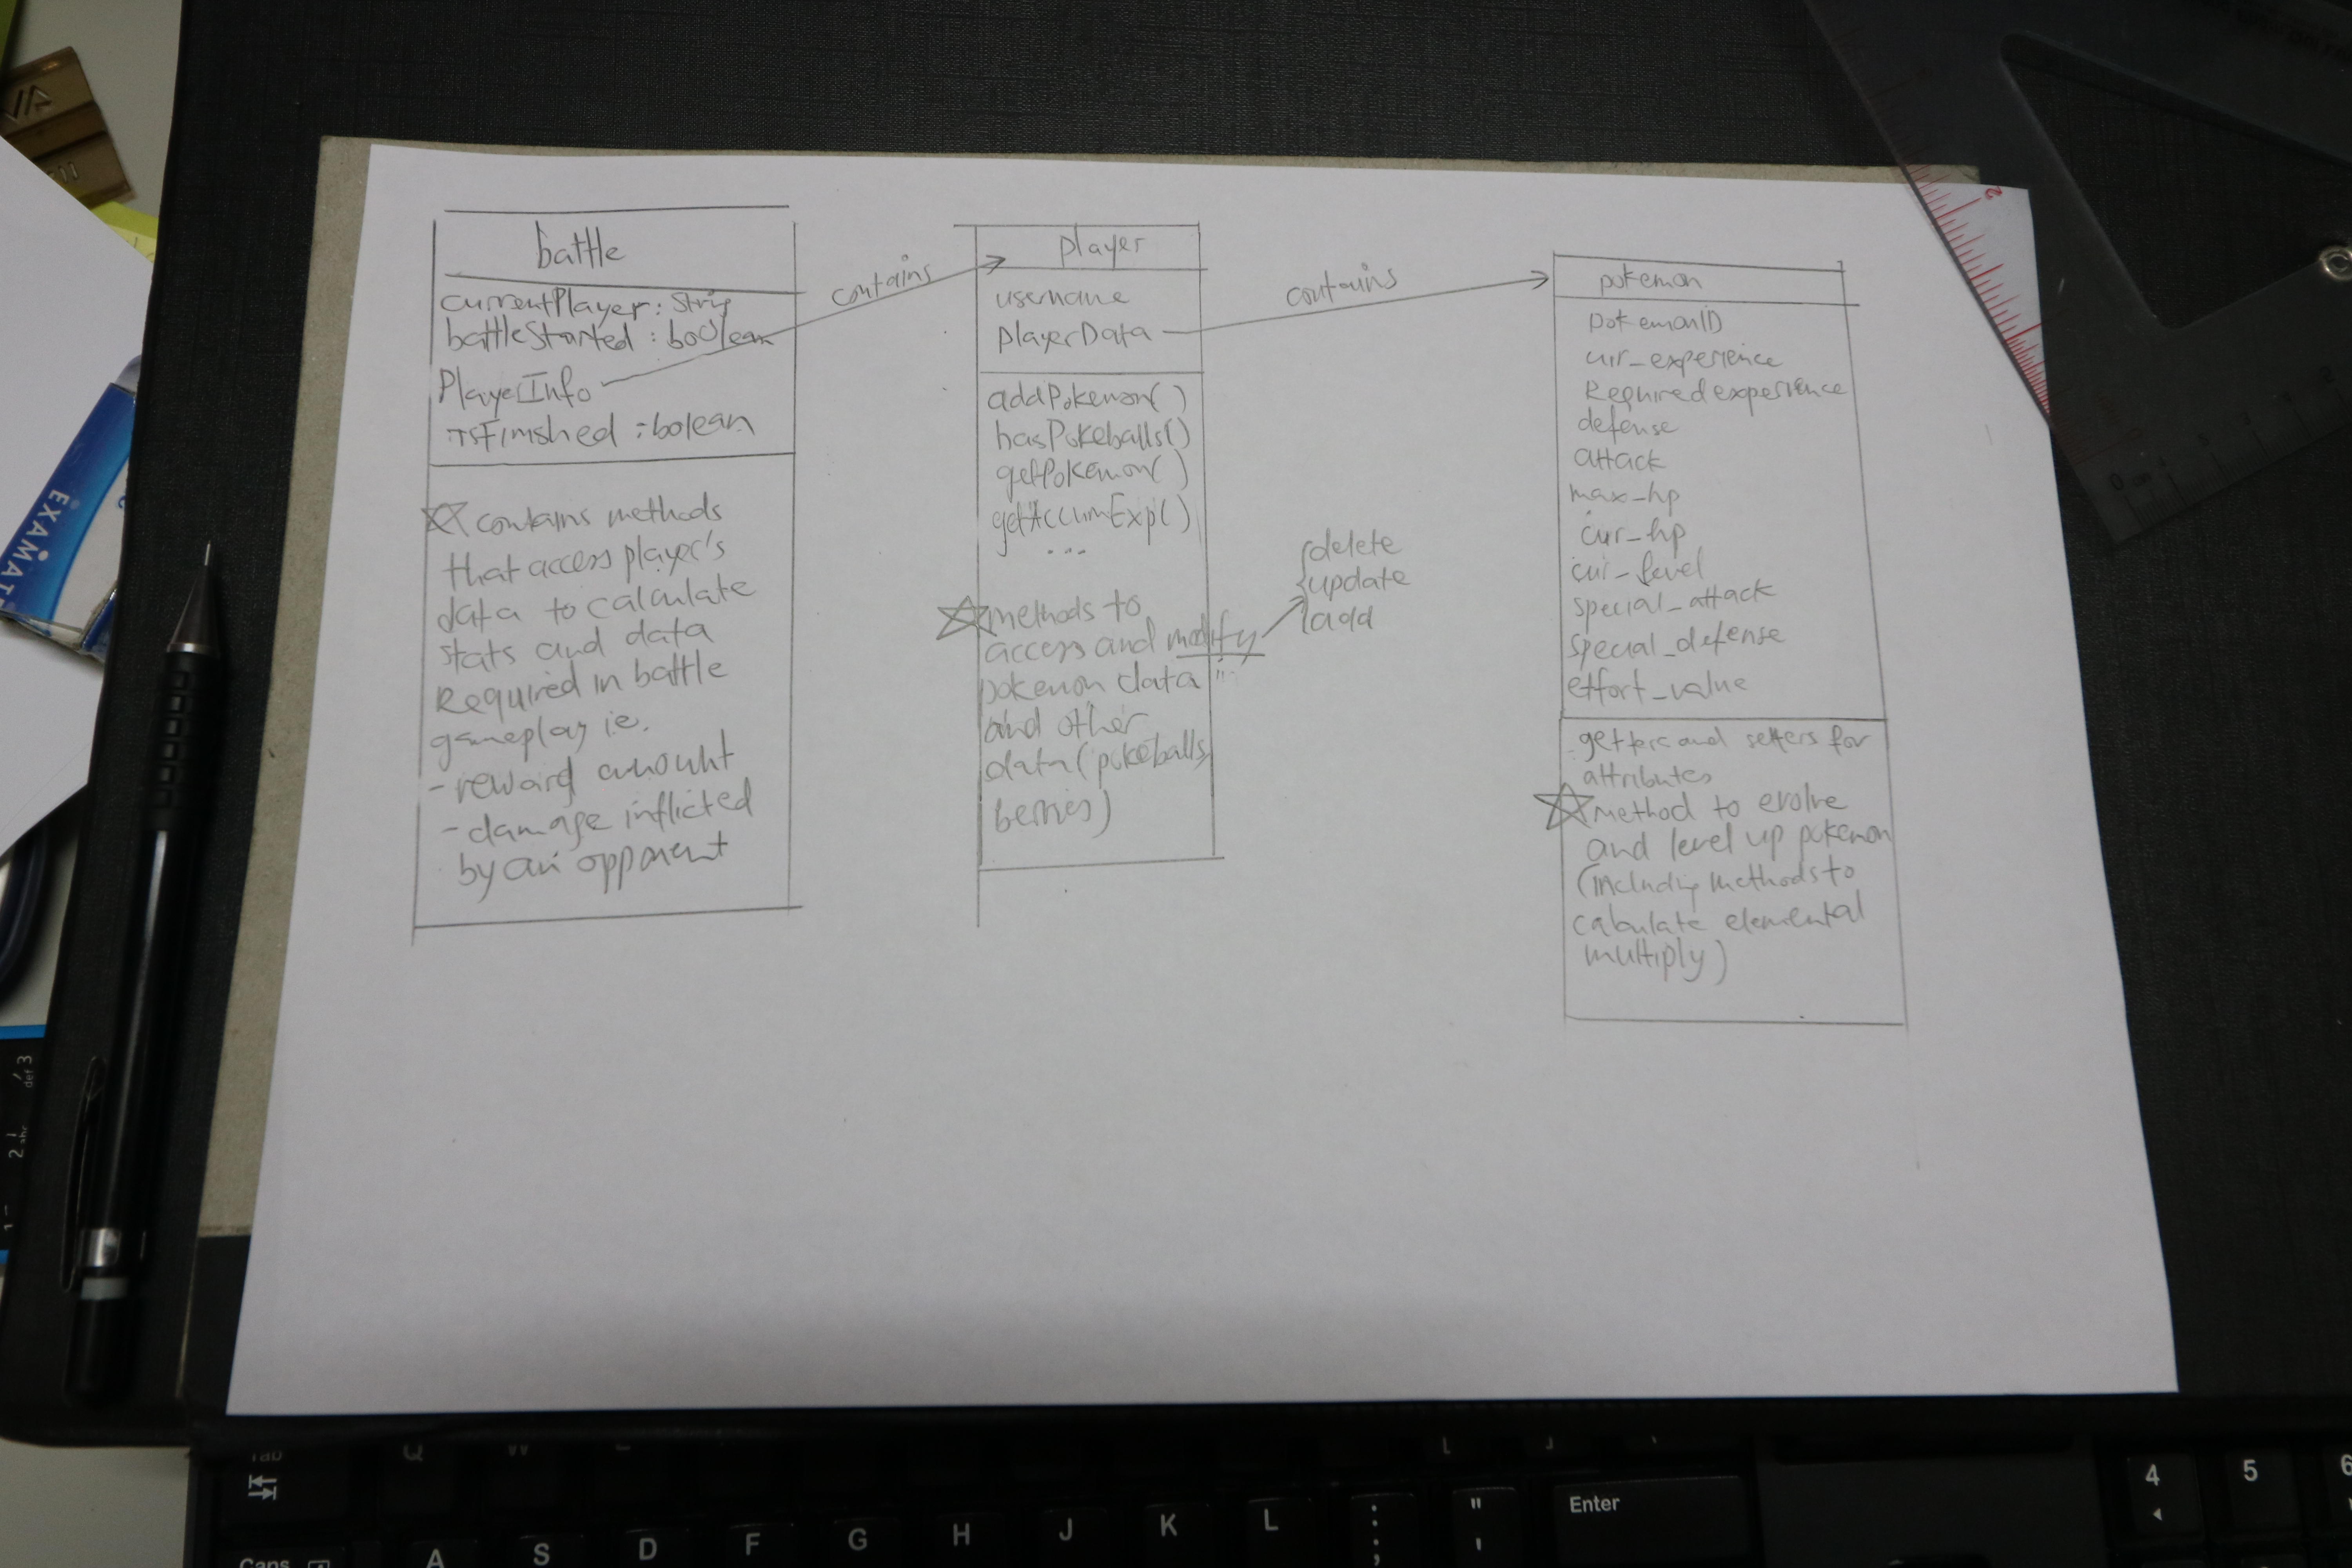 battle
currentPlayer: Strig
battleStarted : boolean
PlayerInfo
isFinished : bolean
contains methods
that access player's
data to calculate
stats and data
Required in battle
gameplay i.e.
- reward amount
- damage inflicted
by an opponent
contains
player
username
playerData
addPokemon( )
hasPokeballs()
getPokemon( )
getAccumExp( )
...
methods to
access and modify
pokemon data
and other
data (pokeballs,
berries)
delete
update
add
contains
pokemon
pokemonID
cur_experience
Required experience
defense
attack
max_hp
cur_hp
cur_level
special_attack
special_defense
effort_value
getters and setters for
attributes
method to evolve
and level up pokemon
(including methods to
calculate elemental
multiply)
EXAM
2
3
def
2
abc
1
Tab
Q
W
Caps
A
S
D
F
G
H
J
K
L
:
;
"
'
Enter
4
5
6